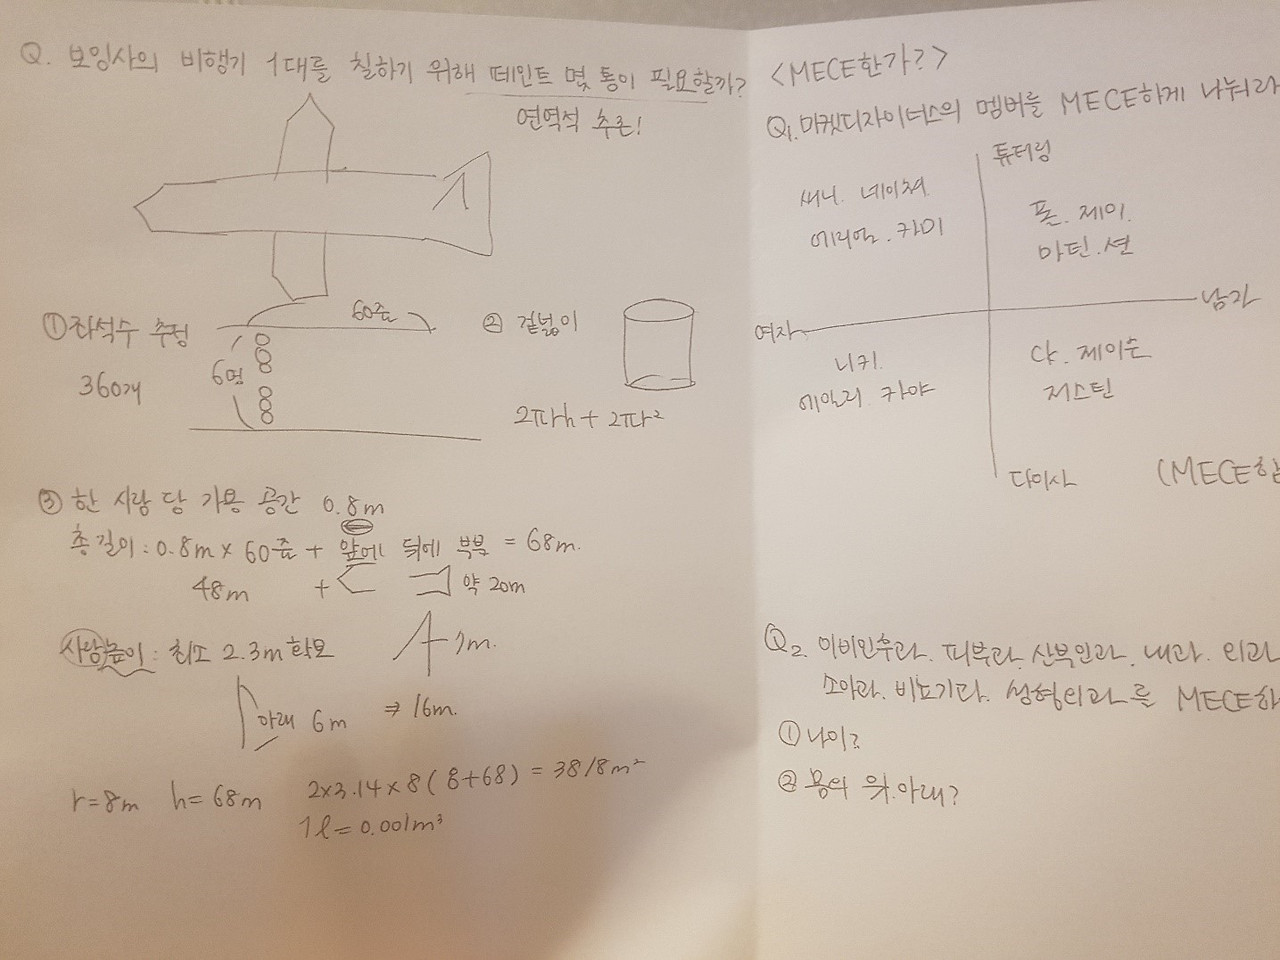 Q. 보잉사의 비행기 1대를 칠하기 위해 페인트 몇 통이 필요할까?
연역적 추론!
① 좌석수 추정
360개
60줄
6명
② 겉넓이
2πrh + 2πr²
③ 한 사람 당 가용 공간 0.8m
총 길이 : 0.8m × 60줄 + 앞에 뒤에 부분 = 68m.
48m + 약 20m
사람높이 : 최소 2.3m 확보
7m.
아래 6m ⇒ 16m.
r=8m h=68m 2×3.14×8(8+68) = 3818m²
1ℓ = 0.001m³
<MECE한가?>
Q1. 마켓디자이너스의 멤버를 MECE하게 나눠라
튜터링
써니. 네이쳐.
에리얼. 카미
폴. 제이.
마틴. 션
여자
남자
니키.
에밀리. 카야
댜. 제이슨
저스틴
다이사
(MECE함
Q2. 이비인후과. 피부과. 산부인과. 내과. 외과
소아과. 비뇨기과. 성형외과를 MECE하
① 나이?
② 몸의 위.아래?